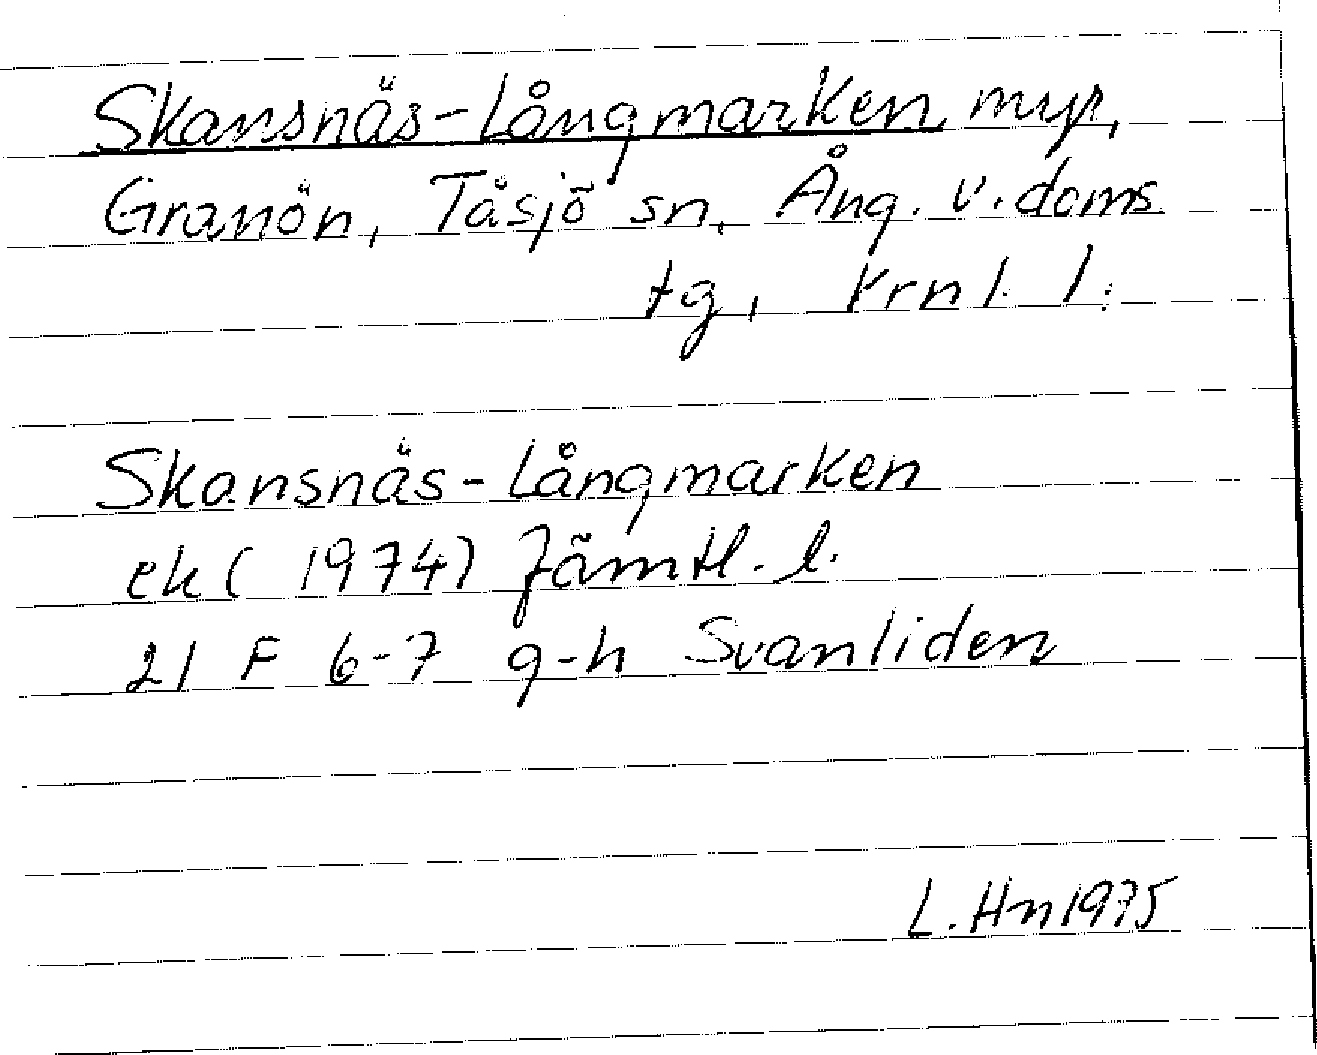 Skansnäs-Långmarken myr,
Granön, Tåsjö sn, Ång. v. doms
tg, Vrnl. l.
Skansnäs-Långmarken
ek (1974) Jämtl. l.
21 F 6-7 g-h Svanliden
L. Hn 1975